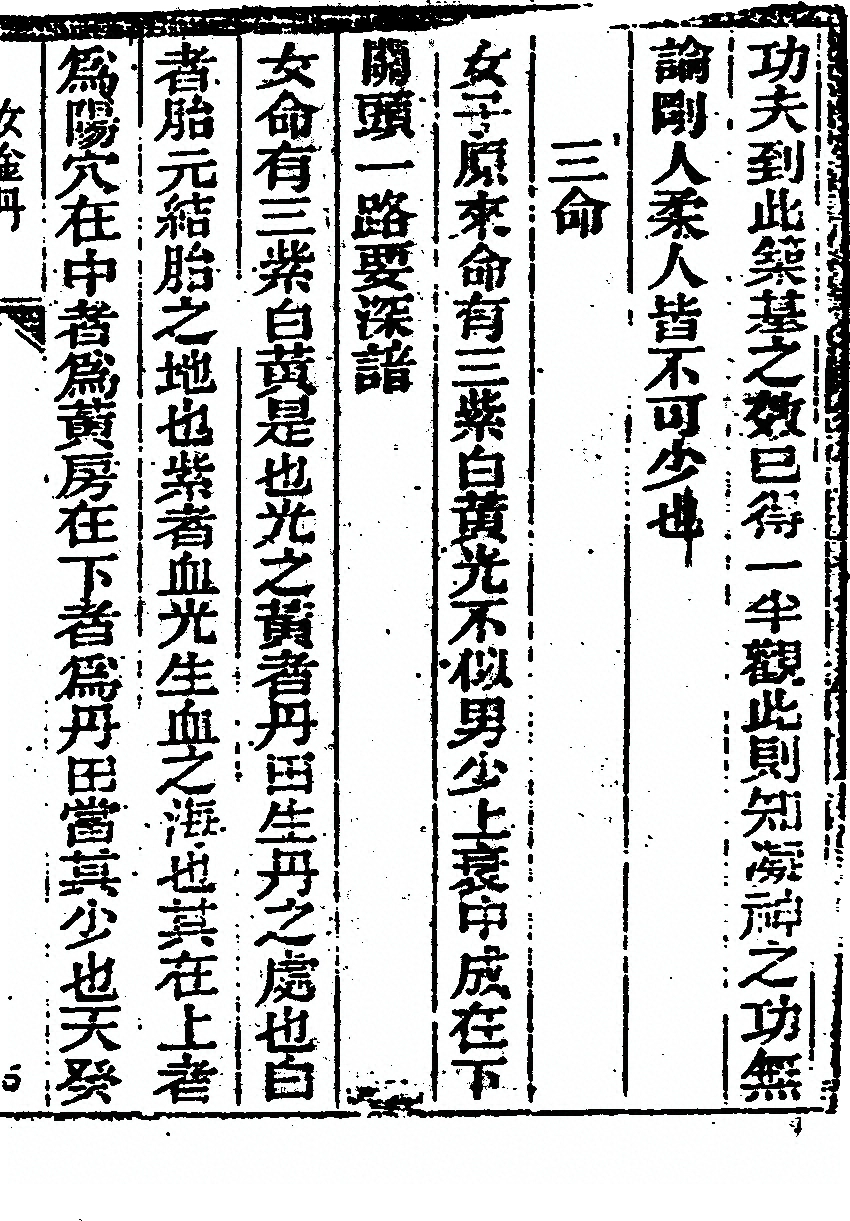 功夫到此築基之效已得一半觀此則知凝神之功無
論剛人柔人皆不可少也
三命
女子原來命有三紫白黃光不似男少上衰中成在下
關頭一路要深諳
女命有三紫白黃是也光之黃者丹田生丹之處也白
者胎元結胎之地也紫者血光生血之海也其在上者
為陽穴在中者為黃房在下者為丹田當其少也天癸
女金丹